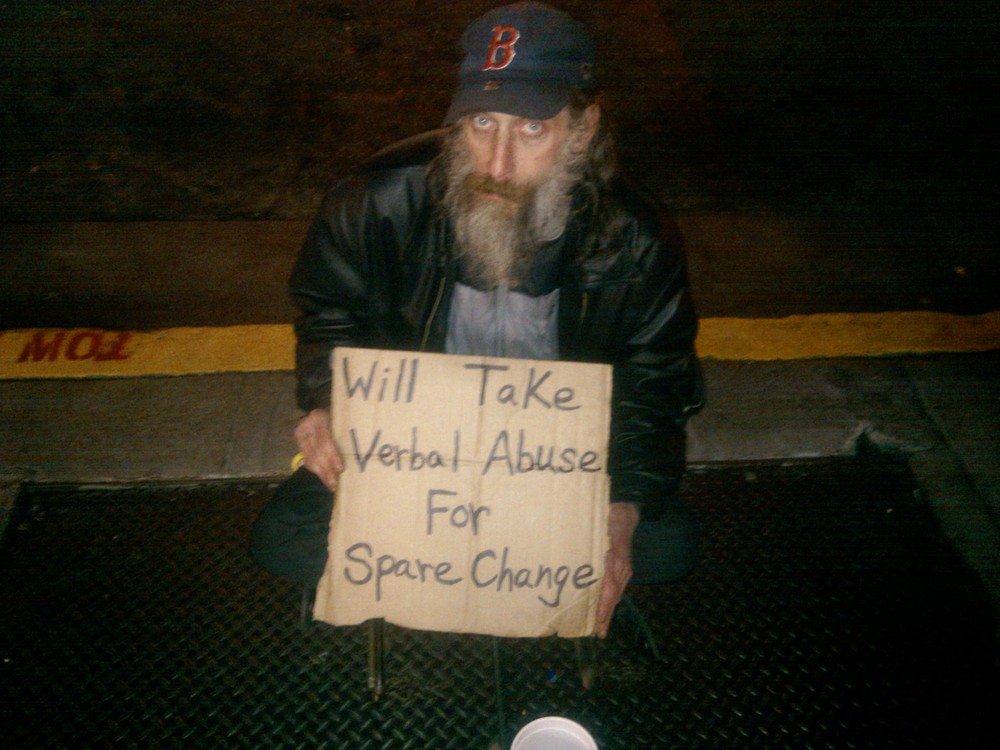 B
TOW
Will Take
Verbal Abuse
For
Spare Change